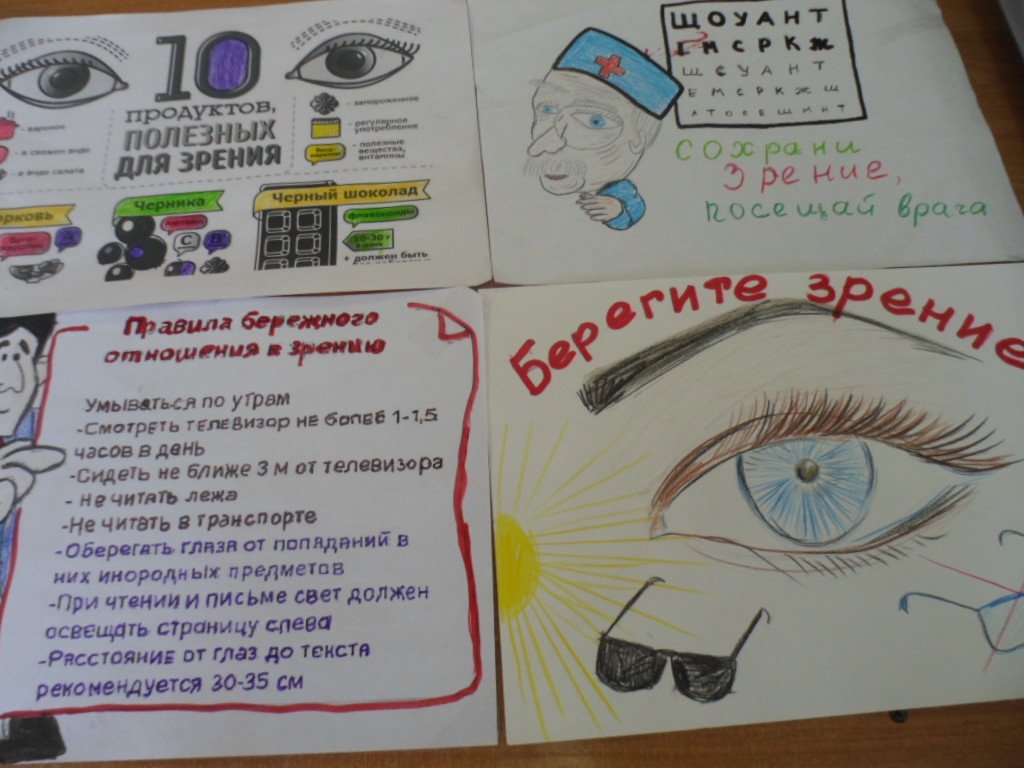 10
продуктов,
ПОЛЕЗНЫХ
ДЛЯ ЗРЕНИЯ
- вареное
- в свежем виде
- в виде салата
- замороженное
- регулярное
употребление
- полезные
вещества,
витамины
Черника
Черный шоколад
флавоноиды
C B
A
10-30 г
в день
+ должен быть
ЩОУАНТ
ЕМСРКЖ
ЩСУАНТ
ЕМСРКЖШ
АТОСЕШИНТ
сохрани
Зрение,
посещай врача
Правила бережного
отношения к зрению
Умываться по утрам
-Смотреть телевизор не более 1-1,5
часов в день
-Сидеть не ближе 3 м от телевизора
- Не читать лежа
-Не читать в транспорте
-Оберегать глаза от попаданий в
них инородных предметов
-При чтении и письме свет должен
освещать страницу слева
-Расстояние от глаз до текста
рекомендуется 30-35 см
Берегите зрение